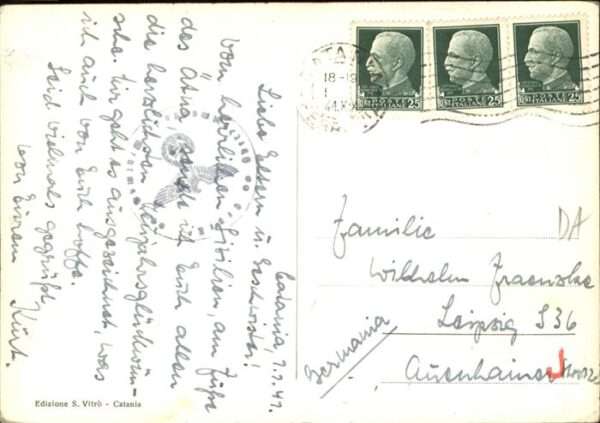 Catania, 2.1.41.
Liebe Eltern u. Geschwister!
Vom herrlichen Sizilien, am Fuße
des Ätna sende ich Euch allen
die herzlichsten Neujahrsglückwün-
sche. Mir geht es ausgezeichnet, was
ich auch von Euch hoffe.
Seid vielmals gegrüßt
von Eurem Kurt.
18-19
25
25
25
Familie DA
Wilhelm
Leipzig S 36
Auenhainer
Germania
Edizione S. Vitrò - Catania